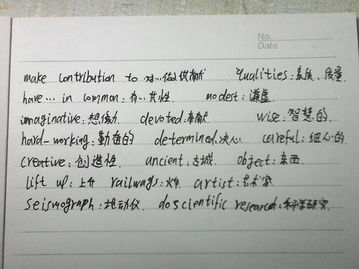 No.
Date
make contribution to 对…做贡献 qualities:素质、质量
have… in common:有…共性 modest:谦虚
imaginative:想像力 devoted:奉献 wise:智慧的
hard-working:勤奋的 determined:决心 careful:细心的
creative:创造性 ancient:古城 object:东西
lift up:上升 railways:火车 artist:艺术家
seismograph:地动仪 do scientific research:科学研究